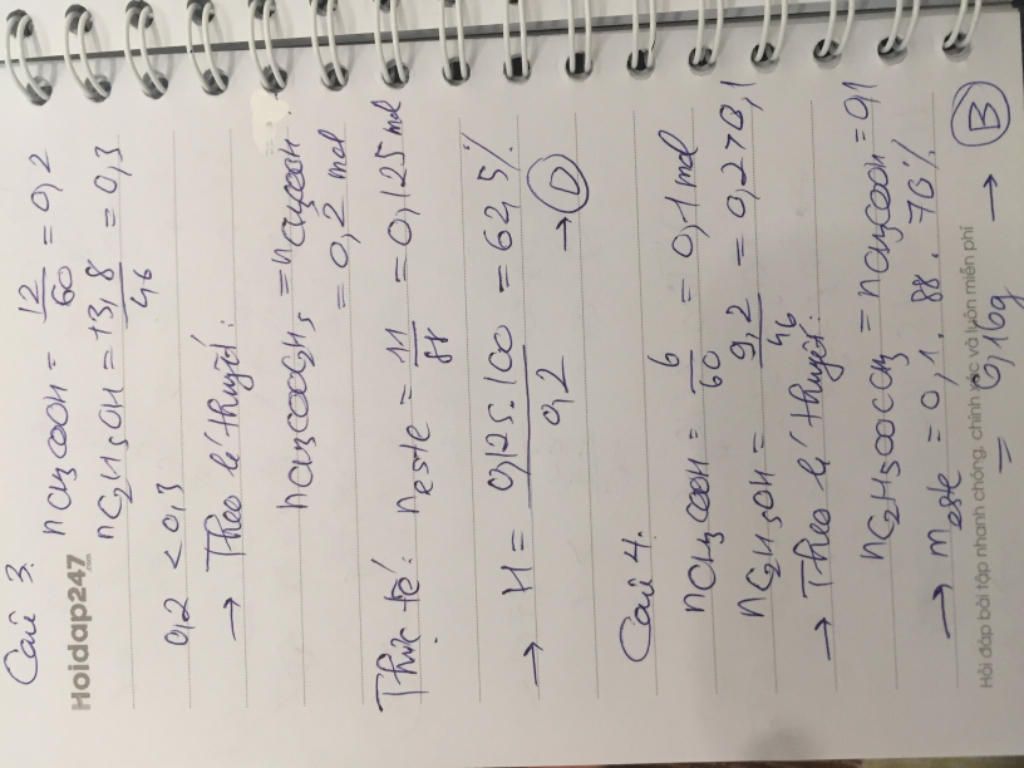 Câu 3.
Hoidap247.com
nCH3COOH = 12/60 = 0,2
nC2H5OH = 13,8/46 = 0,3
0,2 < 0,3
→ Theo lí thuyết:
nCH3COOC2H5 = nCH3COOH
= 0,2 mol
Thực tế: n este = 11/88 = 0,125 mol
→ H = 0,125.100/0,2 = 62,5% → D
Câu 4.
nCH3COOH = 6/60 = 0,1 mol
nC2H5OH = 9,2/46 = 0,2 > 0,1
→ Theo lí thuyết:
nC2H5OOCCH3 = nCH3COOH = 0,1
→ m este = 0,1 . 88 . 70%
Hỏi đáp bài tập nhanh chóng, chính xác và luôn miễn phí
= 6,16g → B